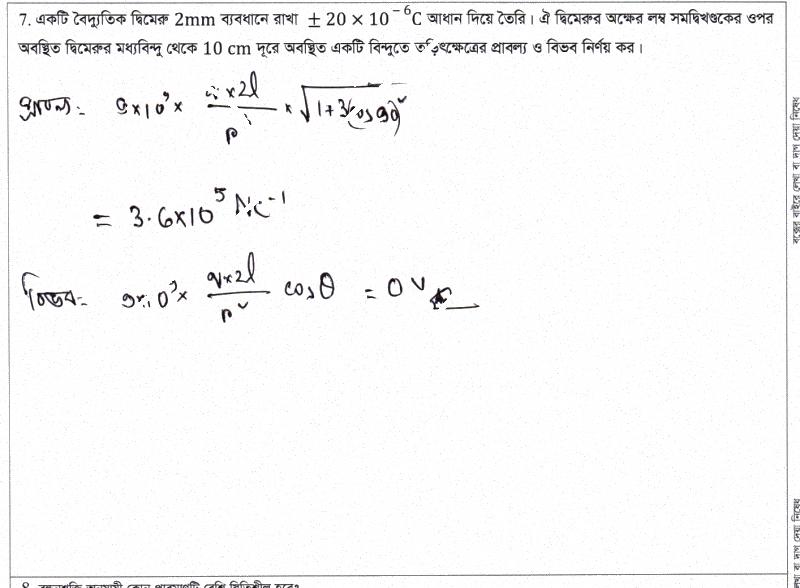 7. একটি বৈদ্যুতিক দ্বিমেরু 2mm ব্যবধানে রাখা ± 20 × 10⁻⁶C আধান দিয়ে তৈরি। ঐ দ্বিমেরুর অক্ষের লম্ব সমদ্বিখণ্ডকের ওপর
অবস্থিত দ্বিমেরুর মধ্যবিন্দু থেকে 10 cm দূরে অবস্থিত একটি বিন্দুতে তড়িৎক্ষেত্রের প্রাবল্য ও বিভব নির্ণয় কর।
প্রাবল্য = 9×10⁹ × q×2l / r³ × √(1+3(cos90)²)
= 3.6×10⁵ NC⁻¹
বিভব = 9×10⁹ × q×2l / r² cosθ = 0 V
বক্সের বাইরে লেখা বা দাগ দেয়া নিষেধ
লেখা বা দাগ দেয়া নিষেধ